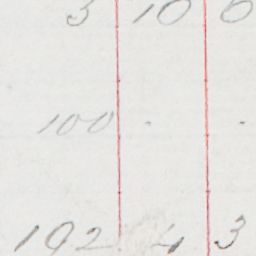 3 10 0
100 . .
192. 4. 3